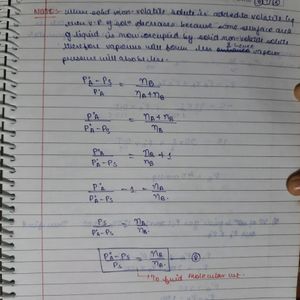 NOTE:- When solid non-volatile solute is added to volatile liq
then V.P of soln decreases because some surface area
of liquid is now occupied by solid non-volatile solute
therefore vapours will form less & hence vapour
pressure will also be less.
P°A - PS / P°A = nB / nA + nB
P°A / P°A - PS = nA + nB / nB
P°A / P°A - PS = nA / nB + 1
P°A / P°A - PS - 1 = nA / nB
PS / P°A - PS = nA / nB
P°A - PS / PS = nB / nA
To find molecular wt.